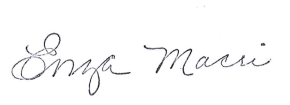 Enza Macri